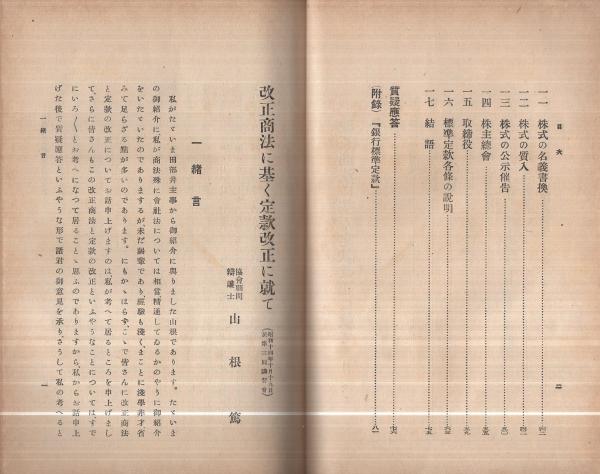 目次
一一 株式の名義書換……四二
一二 株式の質入……四二
一三 株式の公示催告……五〇
一四 株主總會……五五
一五 取締役……
一六 標準定款各條の說明……
一七 結語……七五
質疑應答……七六
(附錄)『銀行標準定款』……八一
二
改正商法に基く定款改正に就て
(昭和十四年十月十六日
於第三回講習會)
協會顧問
辯護士 山根篤
一 緒言
私がたゞいま田部井主事から御紹介に與りました山根であります。たゞいま
の御紹介に私が商法殊に會社法については相當精通してゐるかのやうに御紹介
をいたゞいたのでありまするが、未だ弱輩であり、經驗も淺く、まことに淺學非才省
みて足らざる點が多いのであります。にもかゝはらず、こゝで皆さんに改正商法
と定款の改正についてお話申上げますのは、私が考へて居るところを申上げまし
て、さらに皆さんもこの改正商法と定款の改正といふやうなことについては、すで
にいろ〳〵とお考へになつて居ることゝ思ふのでありますから、私からお話申上
げた後で質疑應答といふやうな形で諸君の御意見を承り、さうして私の考へると
一 緒言
一